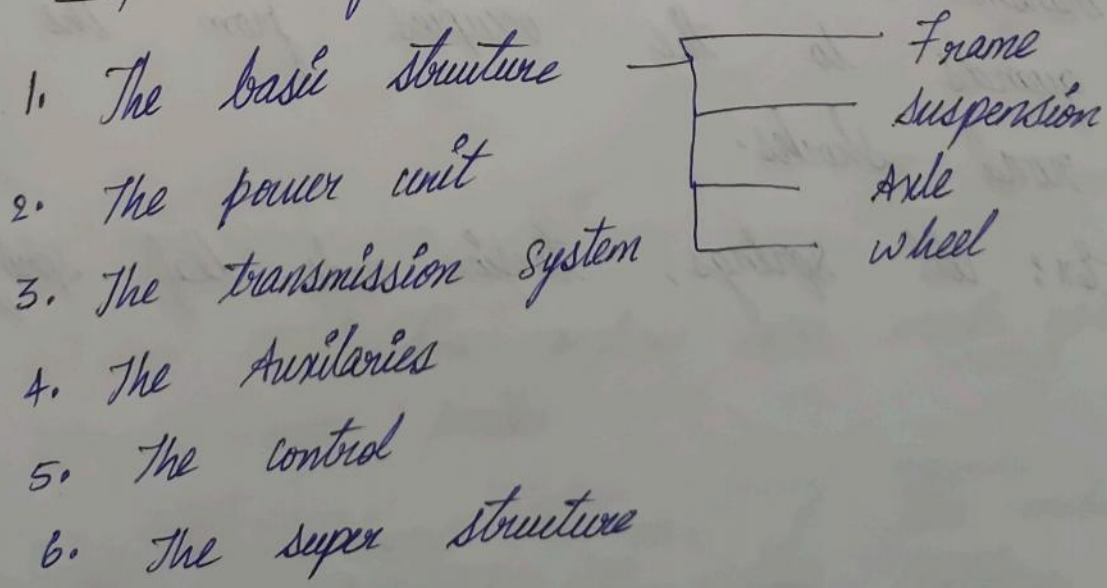 1. The basic structure
Frame
suspension
Axle
wheel
2. The power unit
3. The transmission System
4. The Auxilaries
5. The control
6. The super structure